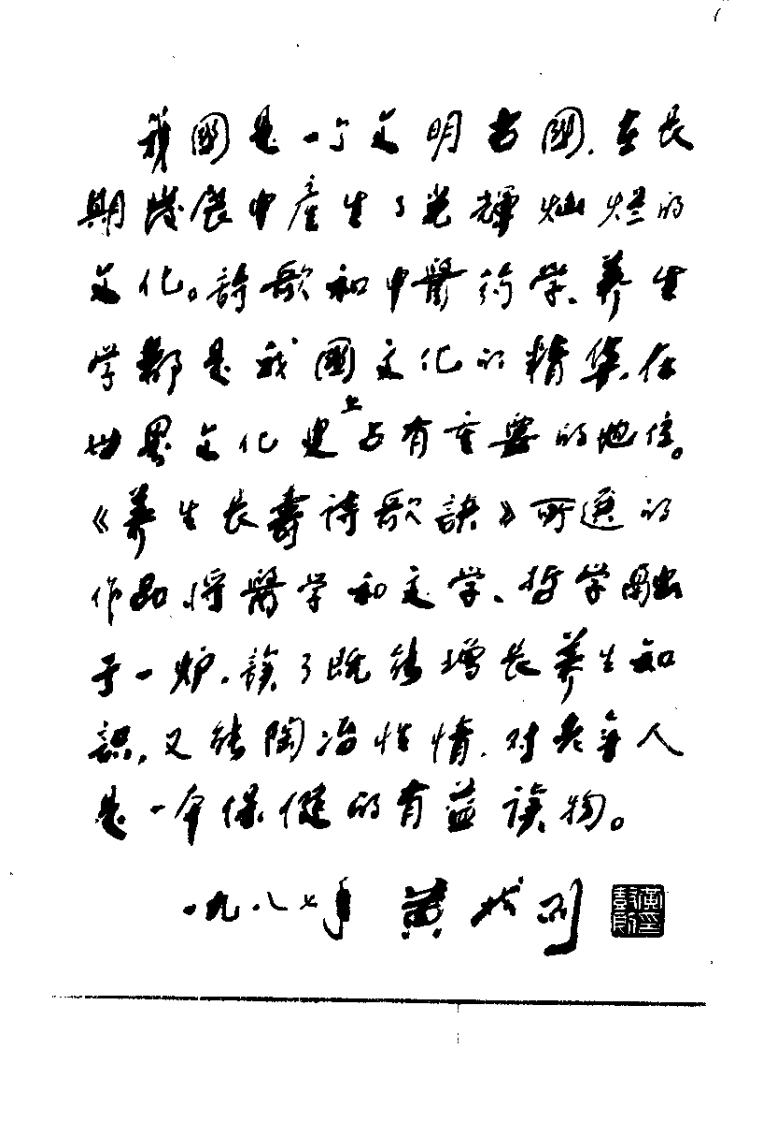 我國是一个文明古國,在長
期發展中產生了光輝灿烂的
文化。詩歌和中醫药学、养生
学都是我國文化的精华,在
世界文化史上占有重要的地位。
《养生长壽诗歌訣》所選的
作品将醫学和文学、哲学融
于一炉,讀了既能增长养生知
識,又能陶冶性情,对老年人
是一本保健的有益读物。
一九八七年 黄